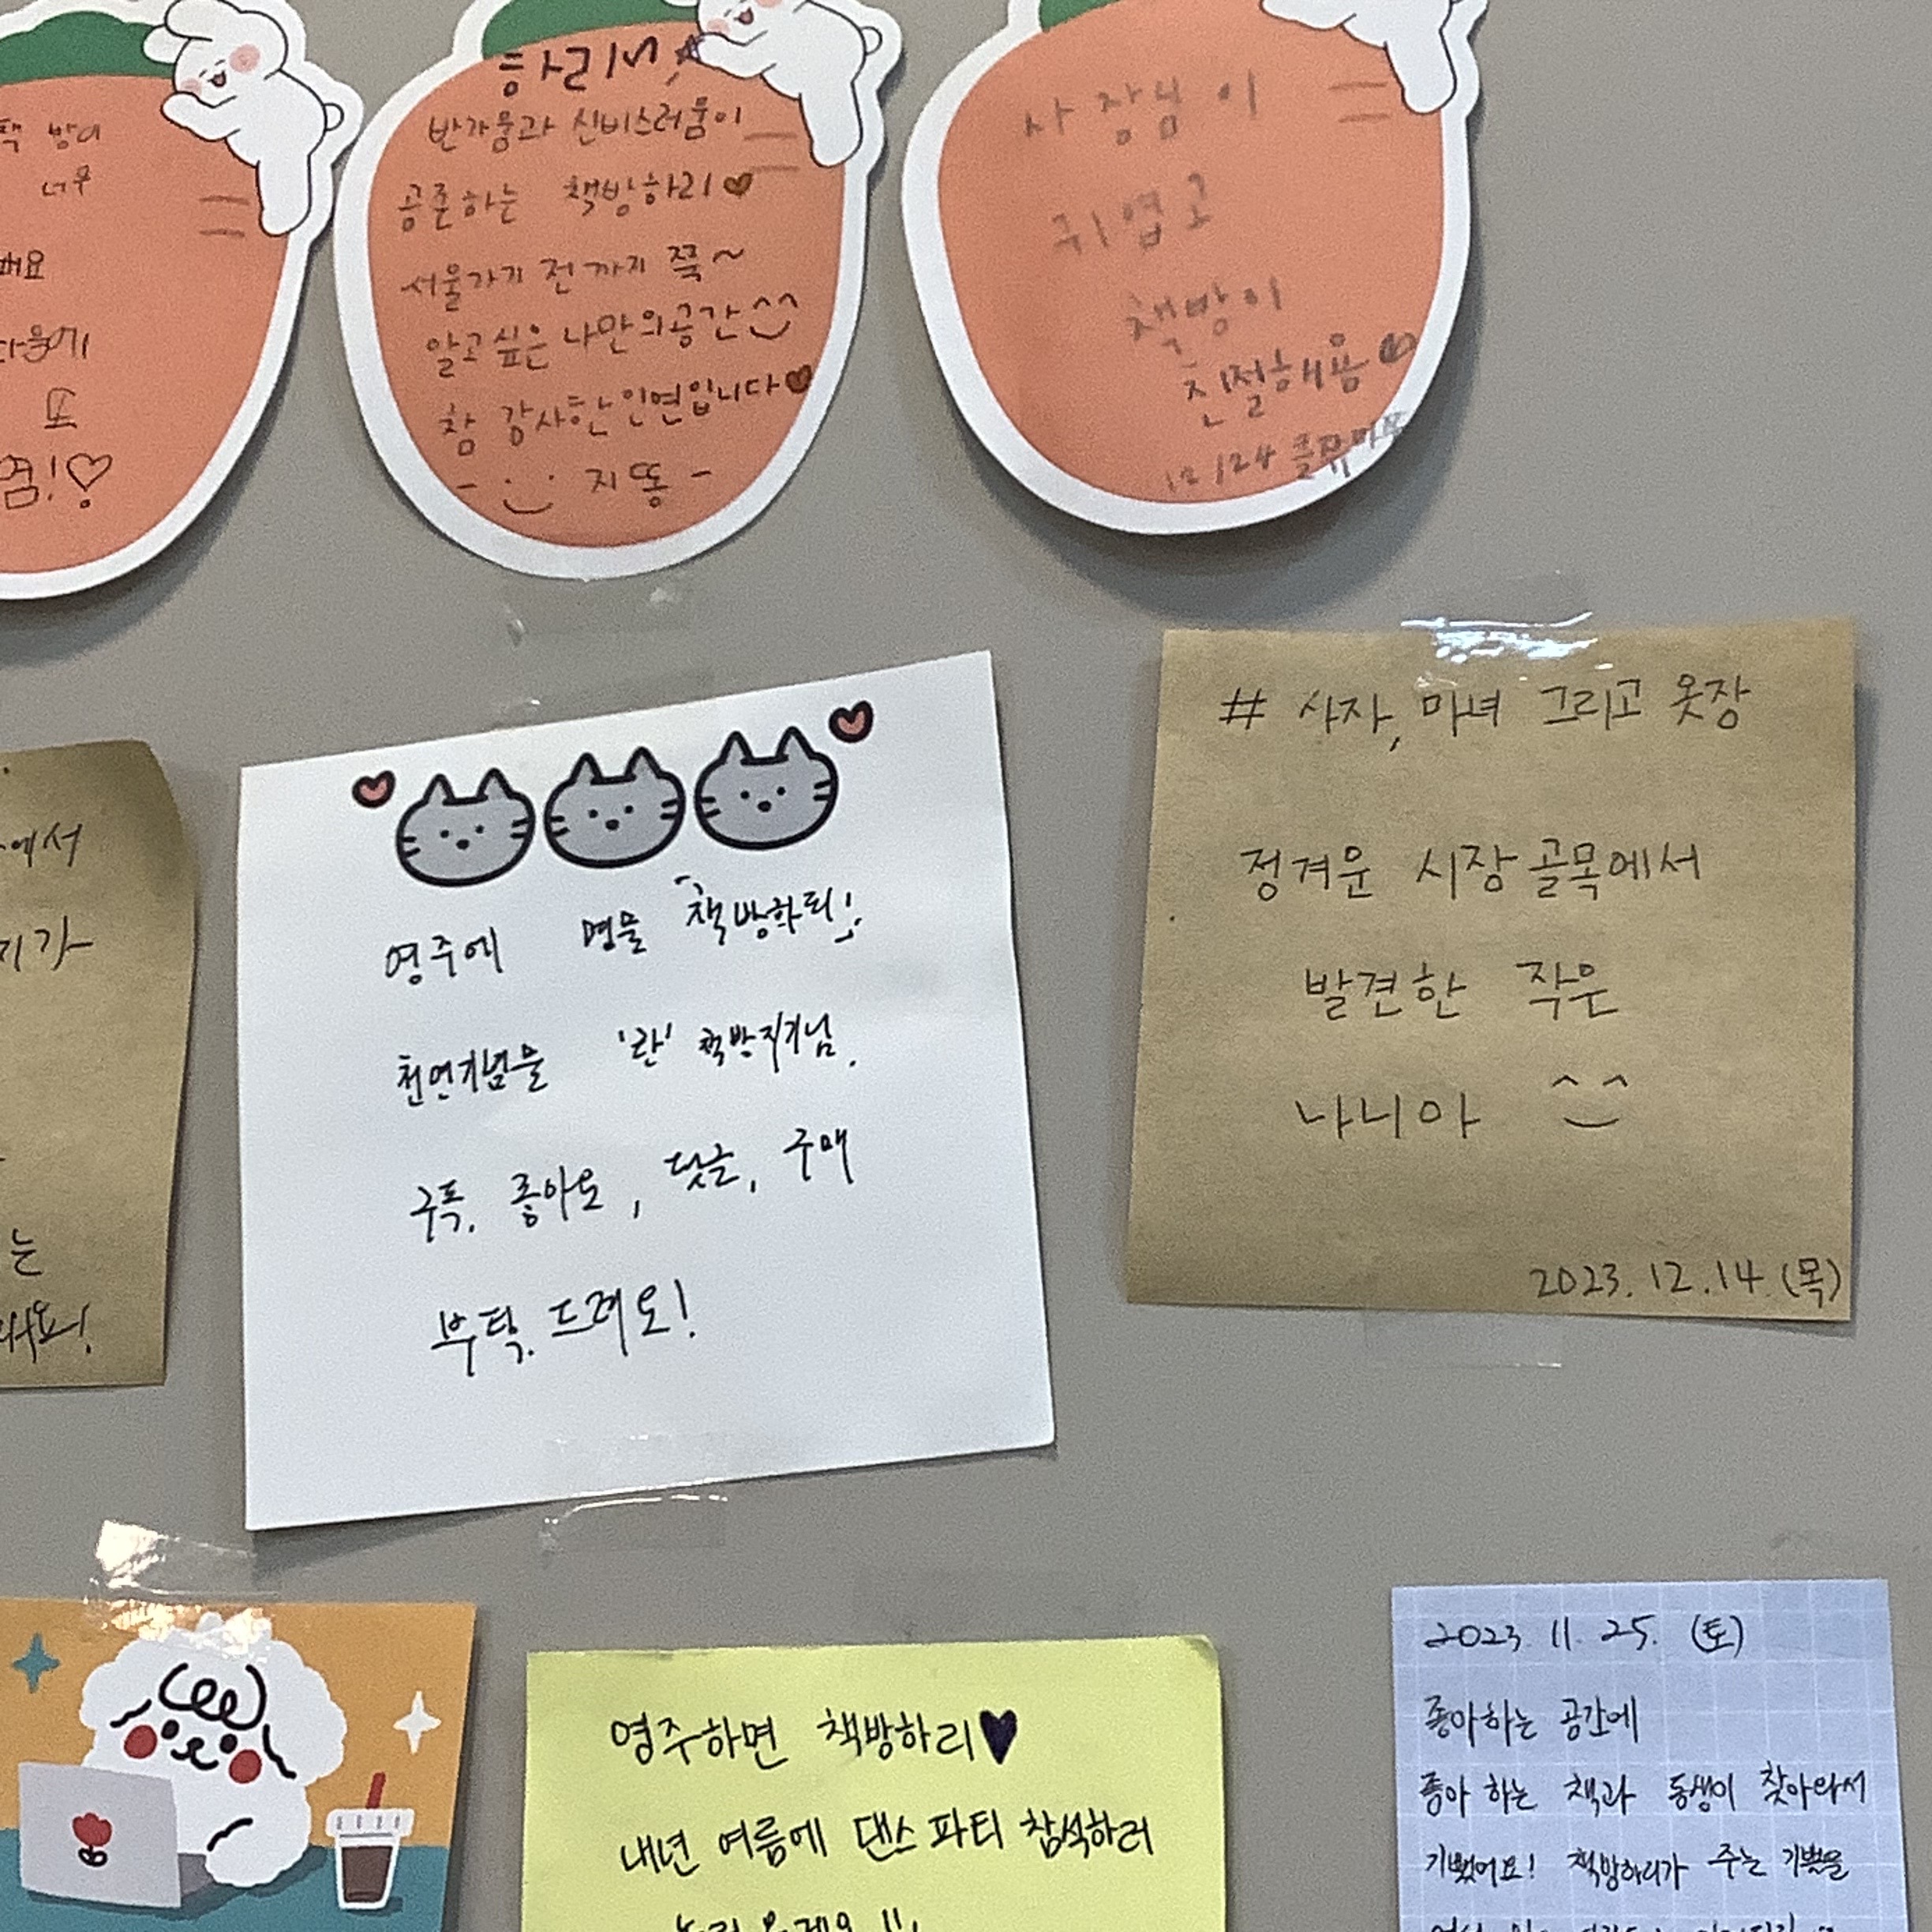 책 방이
너무
배요
다음에
또
하리서
반가움과 신비스러움이
공존하는 책방하리♥
서울가기 전까지 쭉~
알고싶은 나만의공간^^
참 감사한 인연입니다♥
- 지똥 -
사장님이
귀엽고
책방이
친절해용
12/24
에서
기가
는
영주에 명물 책방하리!
천연기념물 '란' 책방지기님.
구독, 좋아요, 댓글, 구매
부탁.드려요!
# 사자, 마녀 그리고 옷장
정겨운 시장 골목에서
발견한 작은
나니아 ^^
2023.12.14.(목)
영주하면 책방하리♥
내년 여름에 댄스파티 참석하러
2023. 11. 25. (토)
좋아하는 공간에
좋아 하는 책과 동생이 찾아와서
기뻤어요! 책방하리가 주는 기쁨을